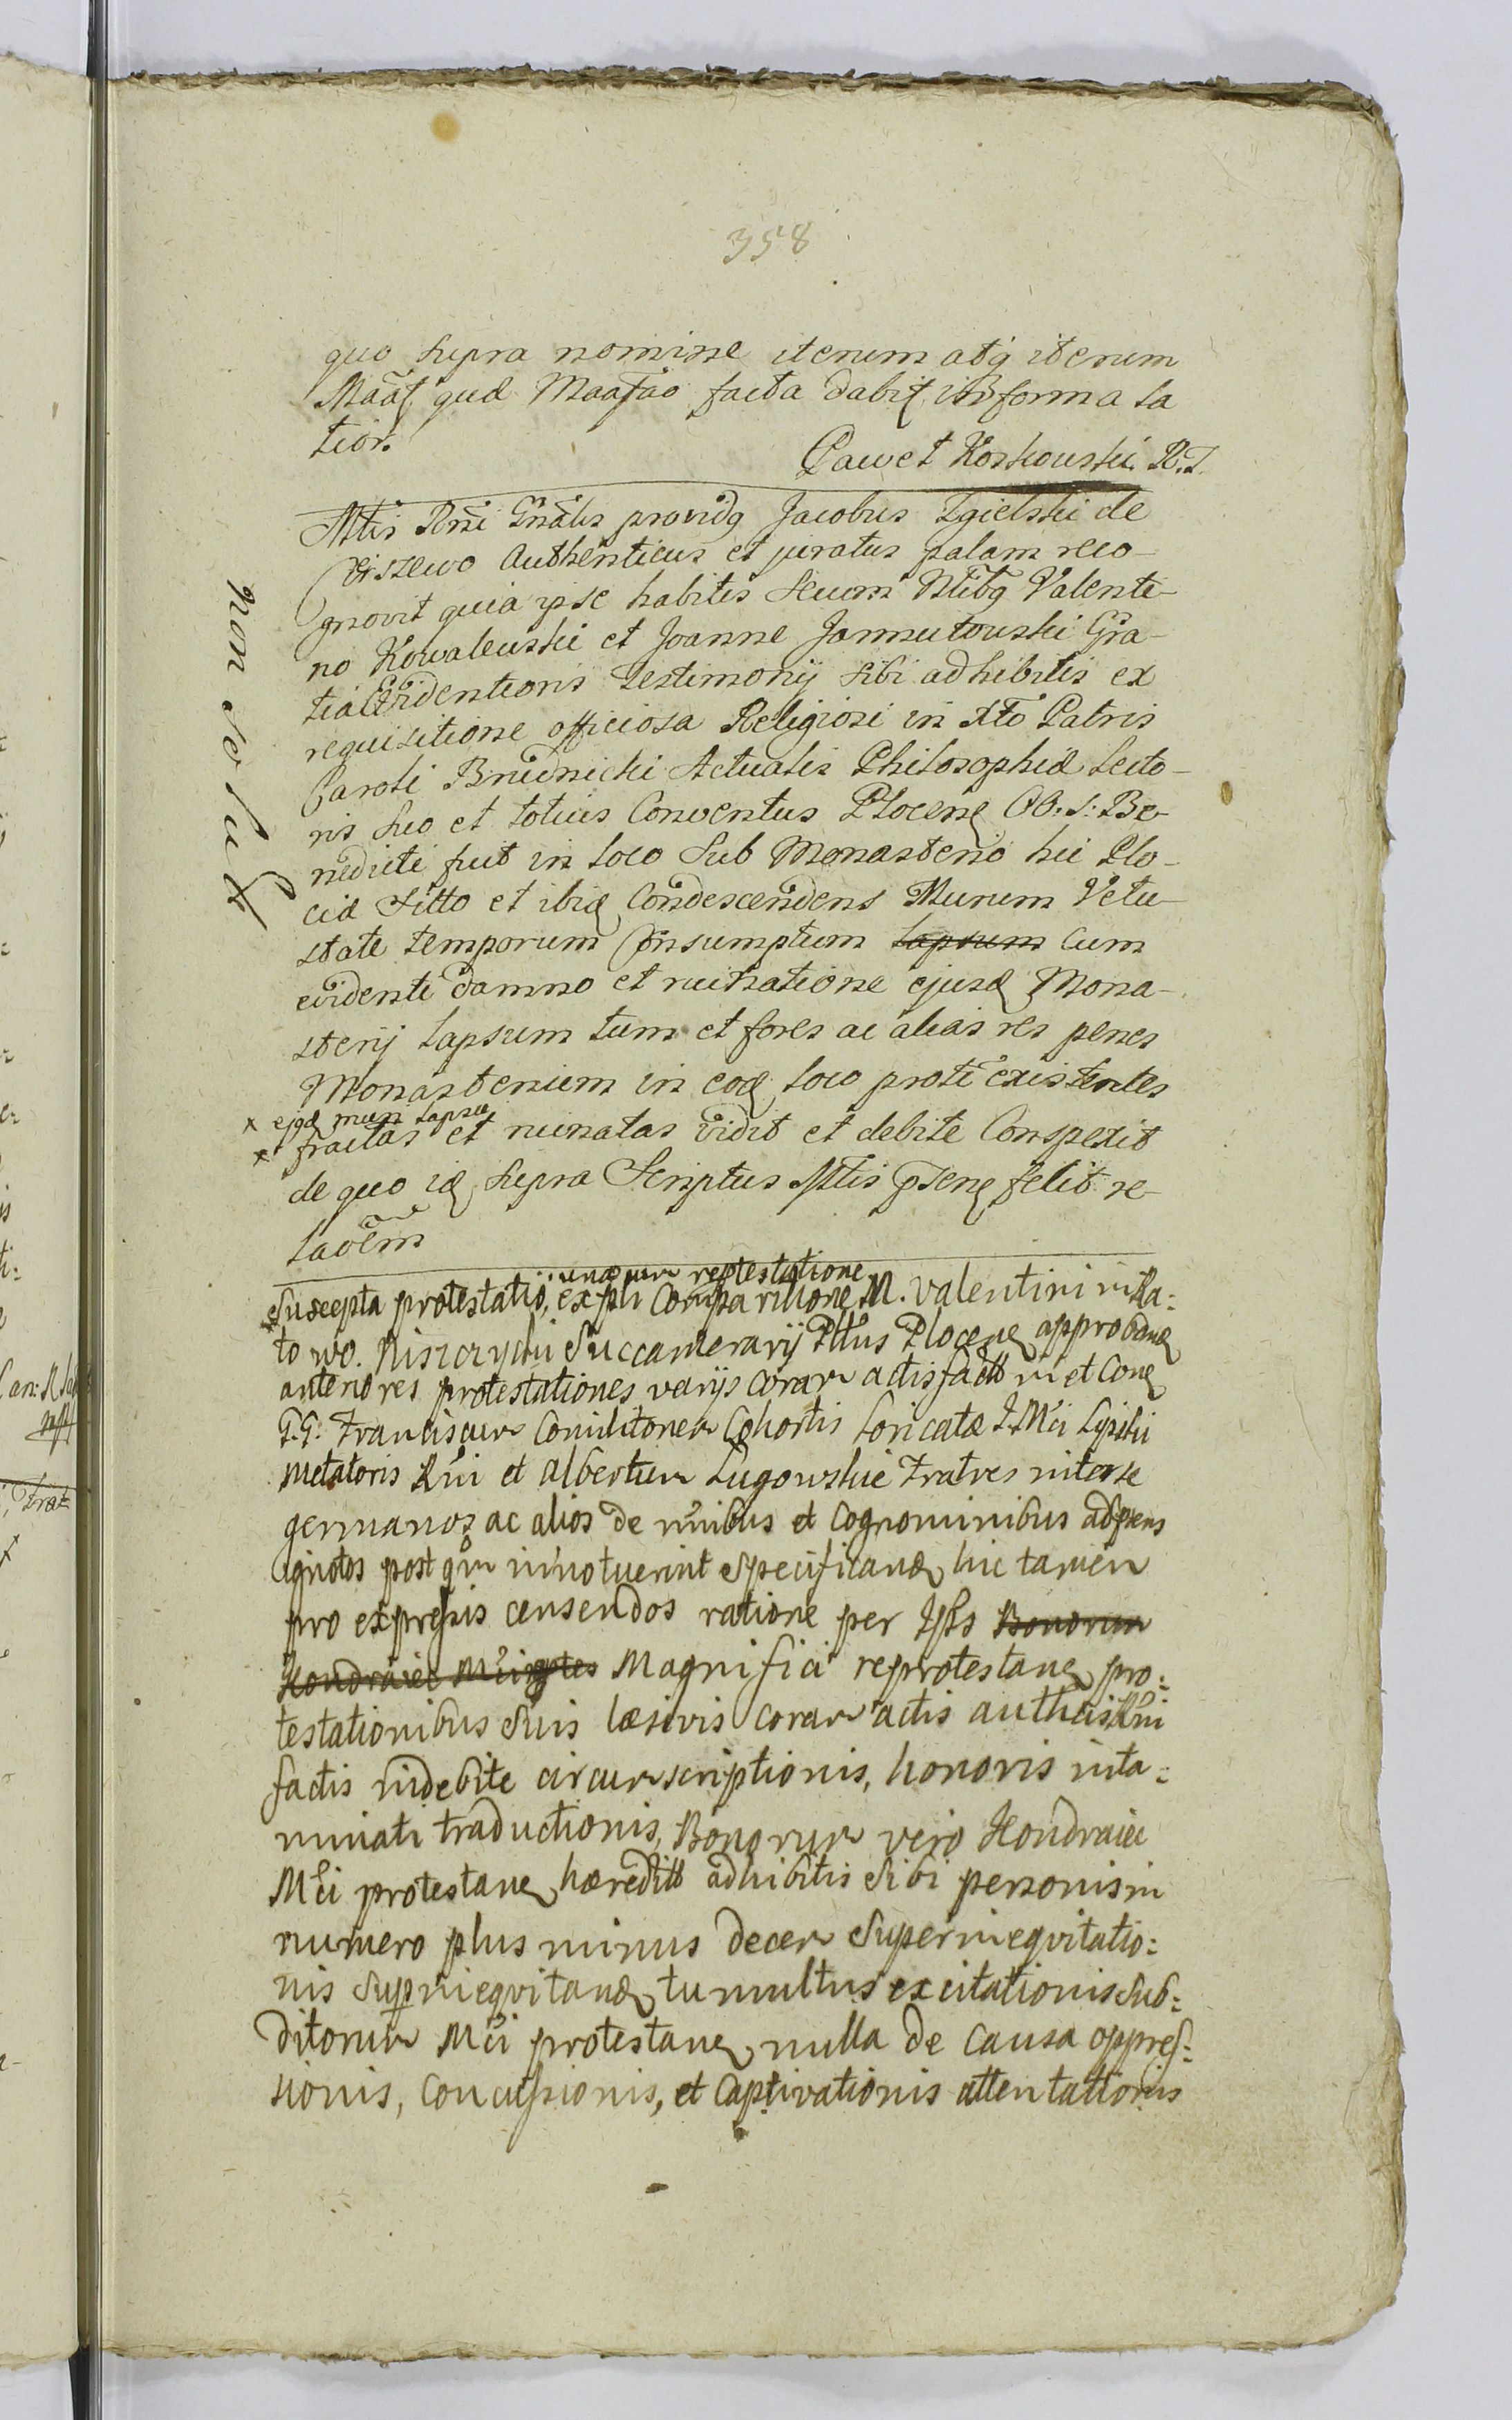 358
quo supra nomine iterum atq iterum
Maãt quæ Maañao facta dabit in forma la
tior.
Paweł Koskowski R.T.
Mtis Rñi Gñalis providq Jacobus Zgielski de
Ciszewo Authenticus et juratus palam reco-
gnovit quia ipse habitis secum Nlibq Valenti-
no Kowalewski et Joanne Jamiutowski Gra-
tia Evidentioris Testimonij sibi adhibitis ex
requisitione officiosa Religiosi in Xto Patris
Caroli Brudnicki Actualis Philosophiæ Lecto-
ris suo et totius Conventus Plocen OO. S: Be-
nedicti fuit in loco sub Monasterio hic Plo-
ciæ sitto et ibid Condescendens Murum Vetu-
state temporum Consumptum lapsum cum
evidenti damno et ruinatione ejusd Mona-
sterij lapsum tum et fores ac alias res penes
Monasterium in eod loco prote existentes
x ejqd muri lapsu
x fractas et ruinatas vidit et debite Conspexit
de quo id supra Scriptus Mtis pñen fecit re-
laõem
non solut
unacum reptestatione
Suscepta protestatio, ex pli Comparitione M. Valentini in Ra:
to wo. Niszczycki Succamerarij Pttus Plocen approban
anteriores protestationes varijs coram actis factt in et Con
G.G. Franciscum Comilitonem Cohortis Loricatæ J. Mci Lipski
Metatoris Rñi et Albertum Lugowskie Fratres inter se
germanos ac alios de nñibus et cognominibus ad præns
ignotos post qm innotuerint specificand hic tamen
pro expressis censendos ratione per Ipsos Bonorum
Kondraiec Mci ptes Magnifici reprotestan pro:
testationibus suis læsivis coram actis authcis Rñi
factis indebite circumscriptionis, honoris inta:
minati traductionis, Bonorum vero Kondraiec
Mci protestan hæreditt adhibitis sibi personis in
numero plus minus decem superinequitatio:
nis superinequitand tumultus excitationis sub:
ditorum Mci protestan nulla de causa oppres:
sionis, concussionis, et captivationis attentationis